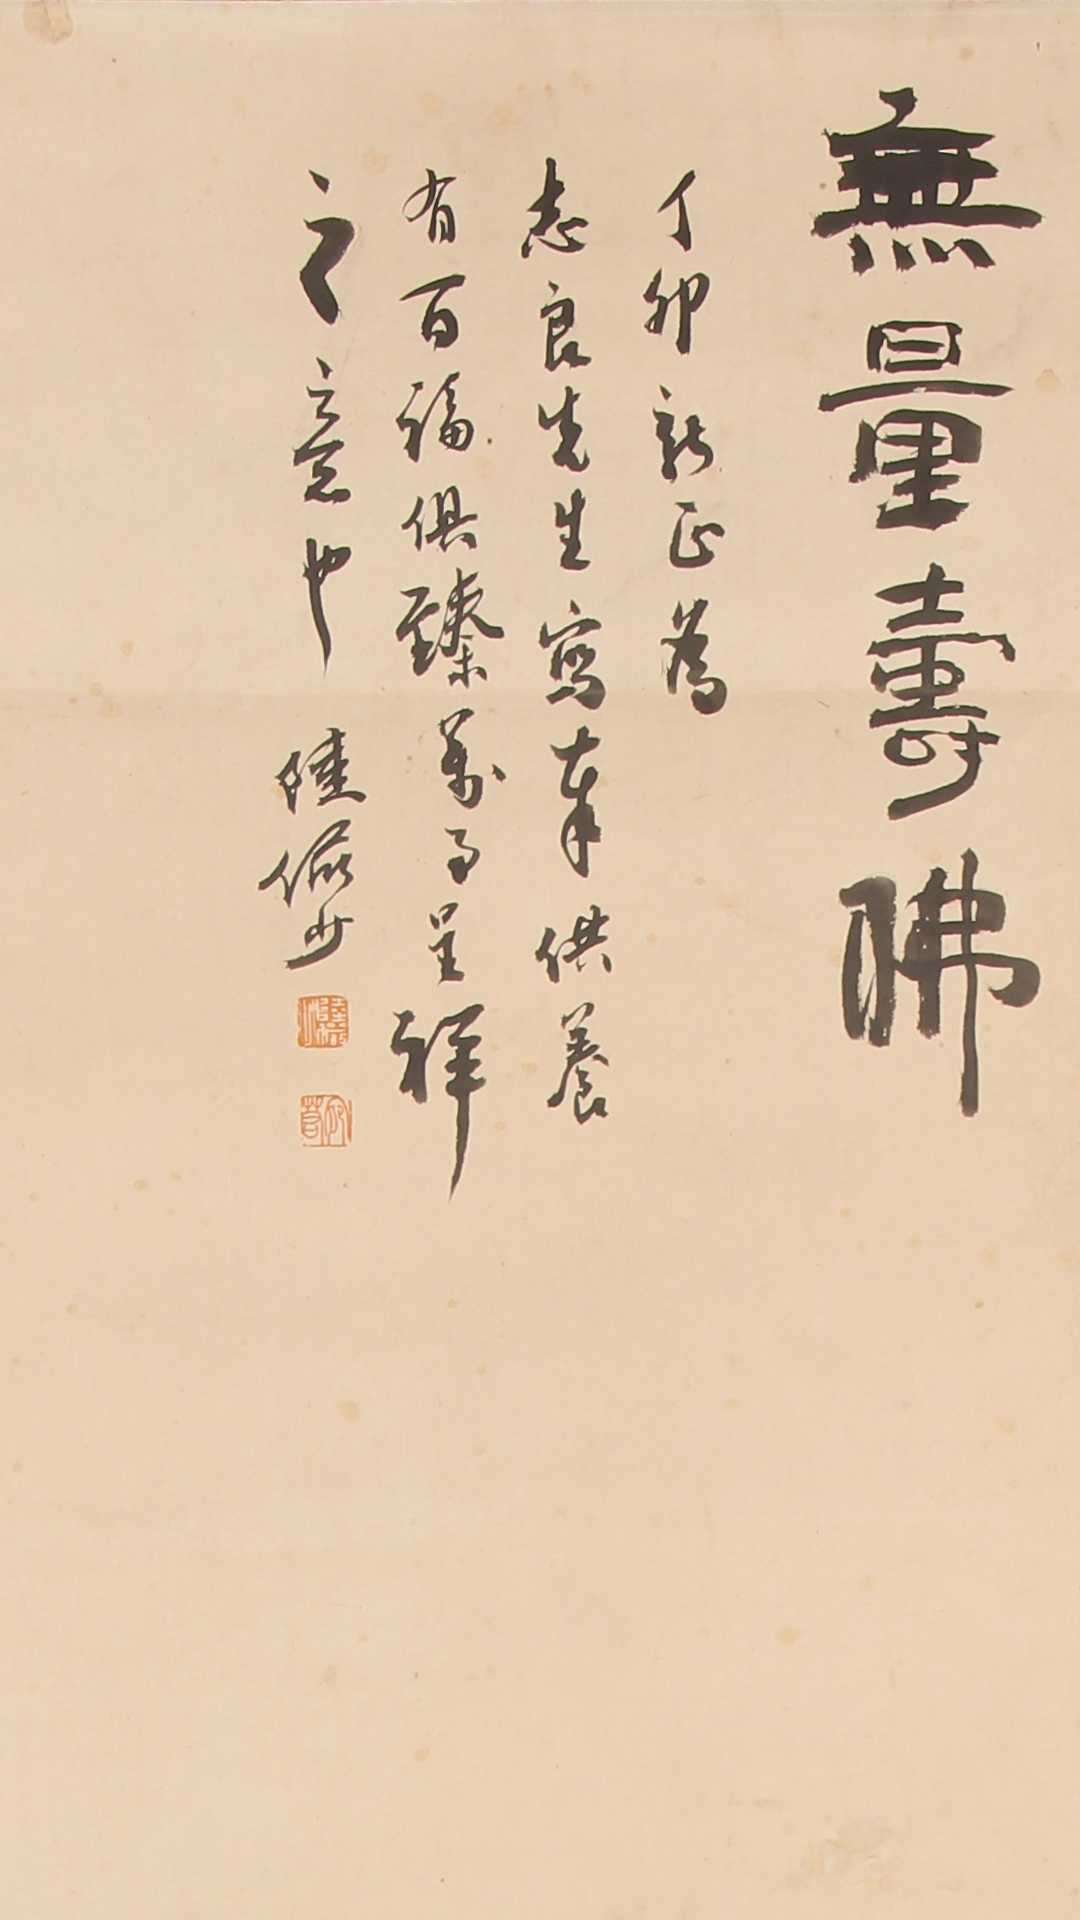 無量壽佛
丁卯新正爲
志良先生寫奉供養
有百福俱臻萬事呈祥
之意也 陸儼少